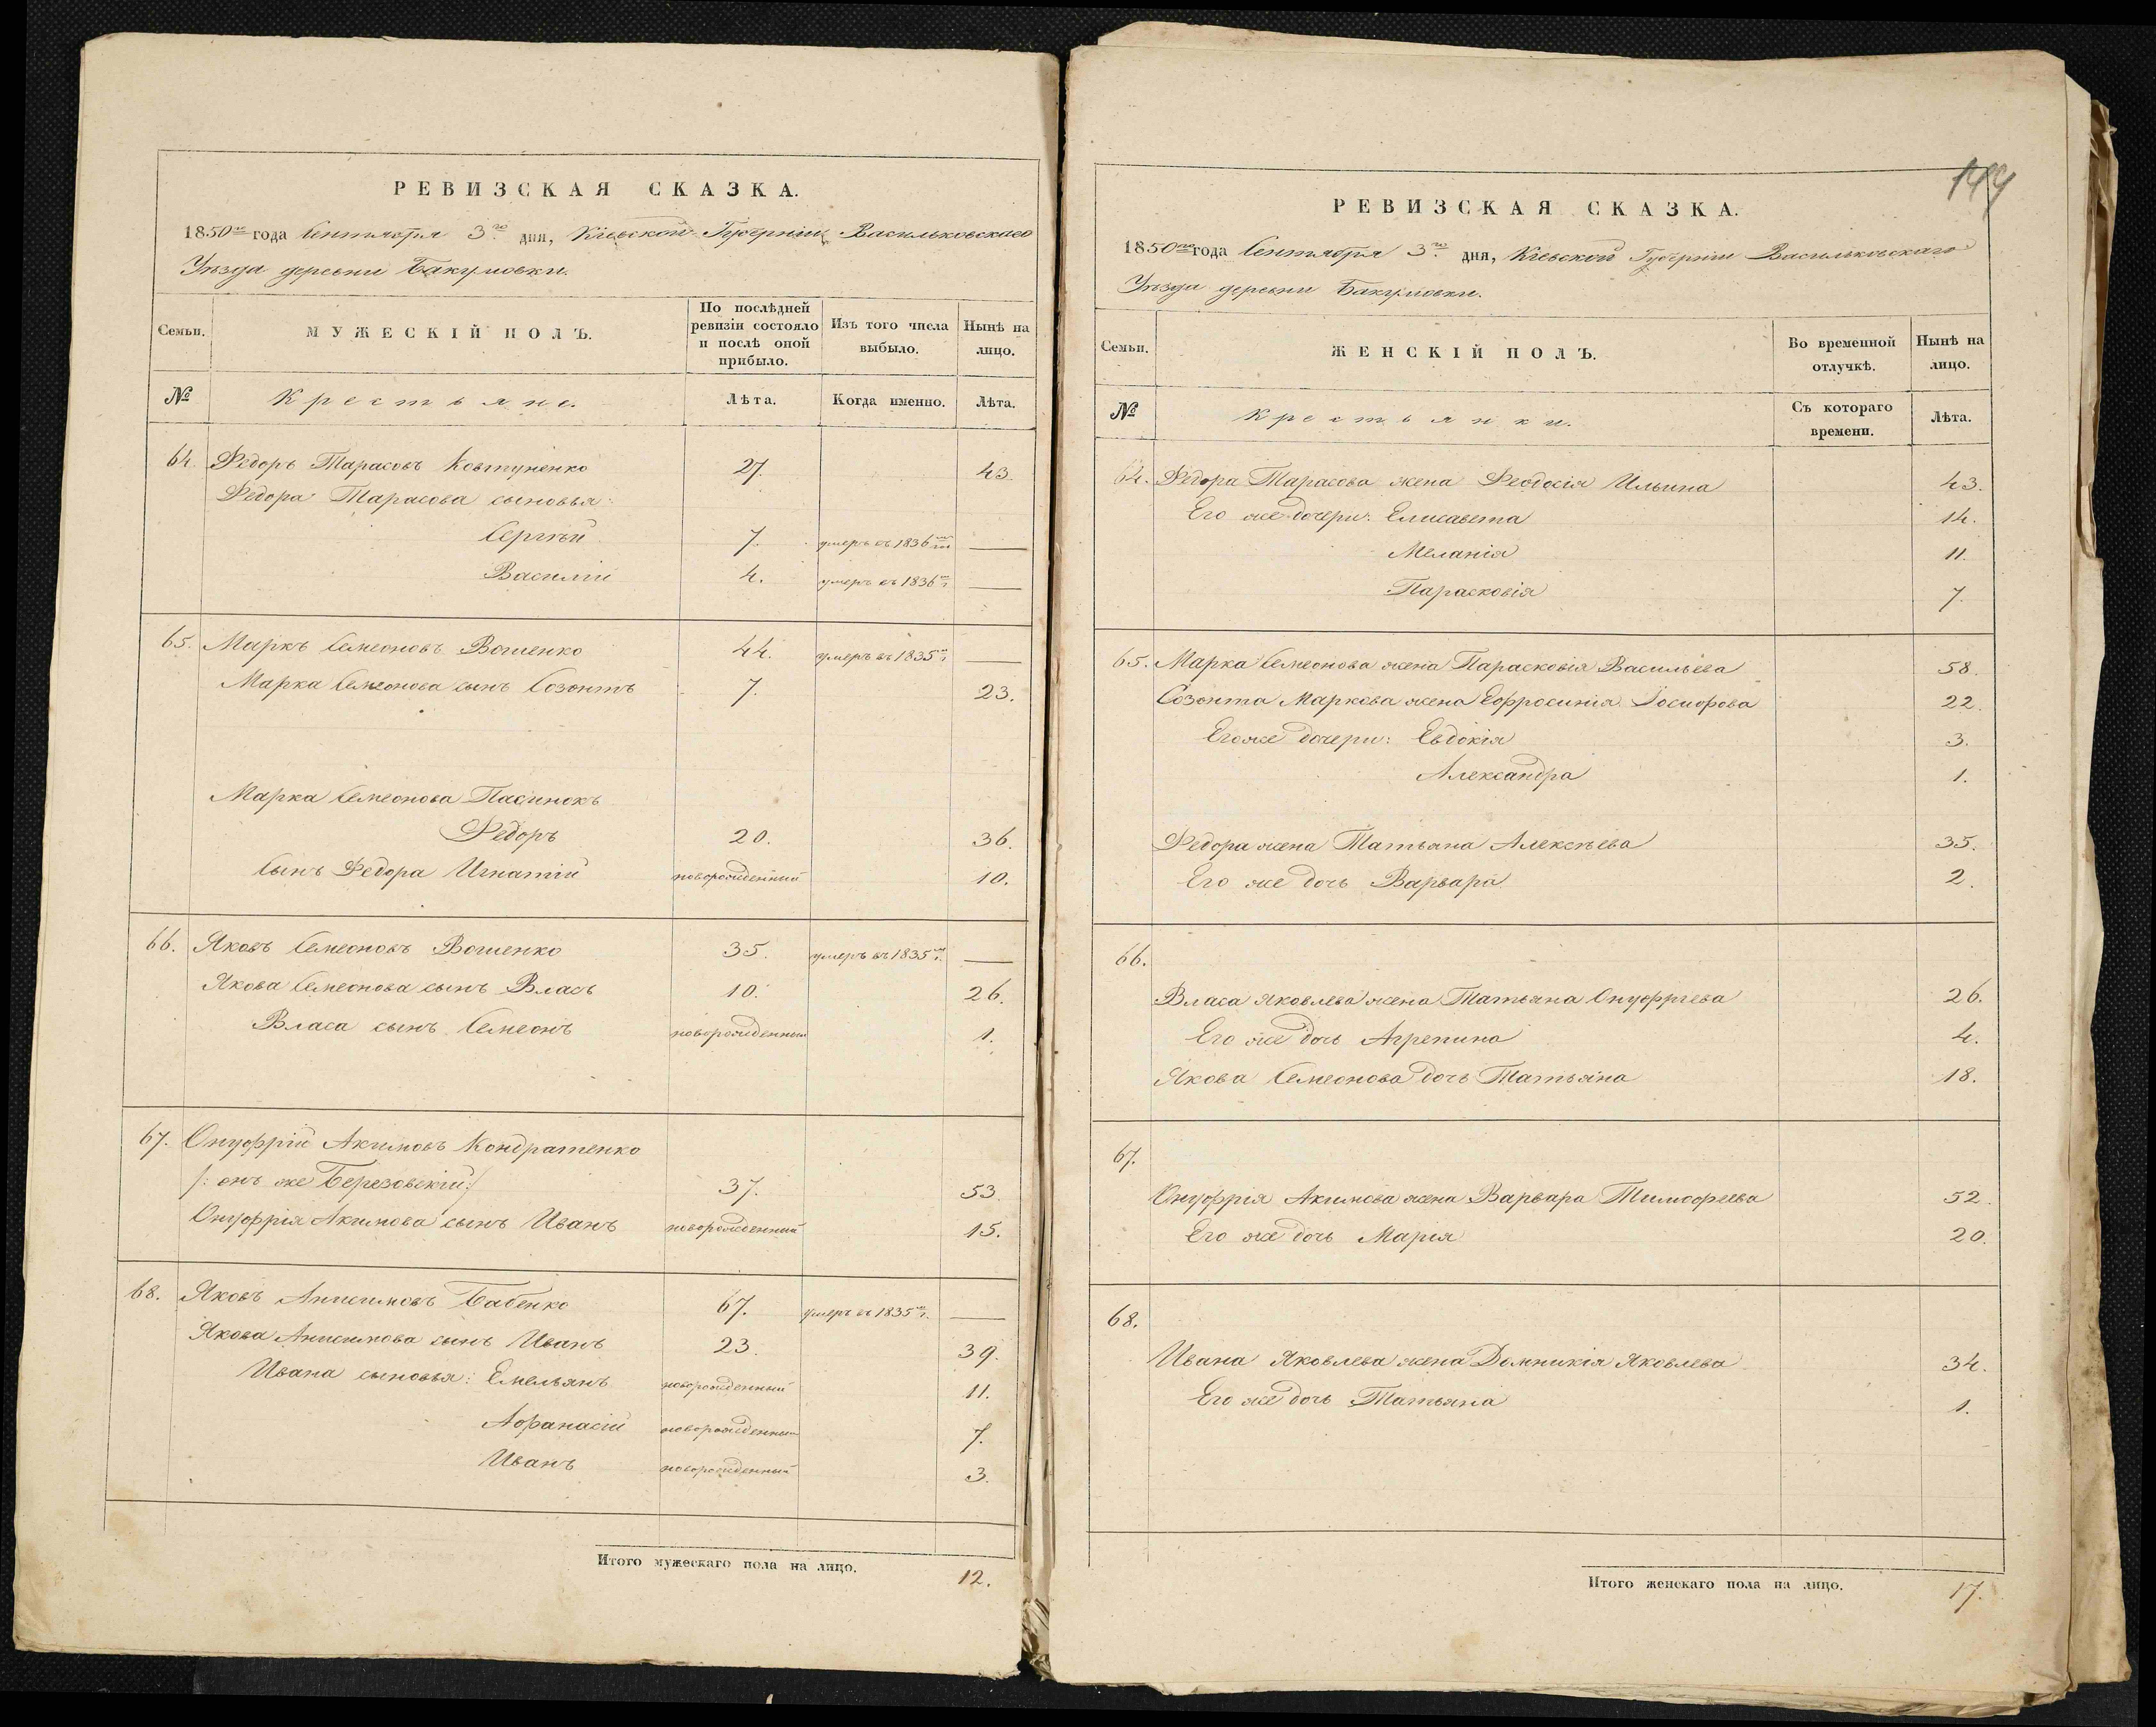 РЕВИЗСКАЯ СКАЗКА.
1850го года Сентября 3го дня, Кіевской Губерніи Васильковскаго
Уѣзда деревни Бакумовки.
Семьи. МУЖЕСКІЙ ПОЛЪ. По послѣдней ревизіи состояло и послѣ оной прибыло. Изъ того числа выбыло. Нынѣ на лицо.
№ Крестьяне. Лѣта. Когда именно. Лѣта.
64. Федоръ Тарасовъ Ковтуненко 27. 43.
Федора Тарасова сыновья:
Сергѣй 7. умеръ въ 1836 —
Василій 4. умеръ въ 1836 —
65. Маркъ Семеоновъ Вошенко 44. умеръ въ 1835 —
Марка Семеонова сынъ Созонтъ 7. 23.
Марка Семеонова Пасинокъ
Федоръ 20. 36.
Сынъ Федора Игнатій новорожденный 10.
66. Яковъ Семеоновъ Вошенко 35. умеръ въ 1835 —
Якова Семеонова сынъ Власъ 10. 26.
Власа сынъ Семеонъ новорожденный 1.
67. Онуфрій Акимовъ Кондратенко
/: онъ же Березовскій :/ 37. 53.
Онуфрія Акимова сынъ Иванъ новорожденный 15.
68. Яковъ Анисимовъ Бабенко 67. умеръ въ 1835 г. —
Якова Анисимова сынъ Иванъ 23. 39.
Ивана сыновья: Емельянъ новорожденный 11.
Афанасій новорожденный 7.
Иванъ новорожденный 3.
Итого мужескаго пола на лицо. 12.
РЕВИЗСКАЯ СКАЗКА.
1850го года Сентября 3го дня, Кіевской Губерніи Васильковскаго
Уѣзда деревни Бакумовки.
Семьи. ЖЕНСКІЙ ПОЛЪ. Во временной отлучкѣ. Нынѣ на лицо.
№ Крестьянки. Съ котораго времени. Лѣта.
64. Федора Тарасова жена Феодосія Ильина 43.
Его же дочери: Елисавета 14.
Меланія 11.
Парасковія 7.
65. Марка Семеонова жена Парасковія Васильева 58.
Созонта Маркова жена Ефросинія Іосифова 22.
Его же дочери: Евдокія 3.
Александра 1.
Федора жена Татьяна Алексѣева 35.
Его же дочь Варвара 2.
66.
Власа Яковлева жена Татьяна Онуфріева 26.
Его же дочь Агрепина 4.
Якова Семеонова дочь Татьяна 18.
67.
Онуфрія Акимова жена Варвара Тимофеева 52.
Его же дочь Марія 20.
68.
Ивана Яковлева жена Домникія Яковлева 34.
Его же дочь Татьяна 1.
Итого женскаго пола на лицо. 17.